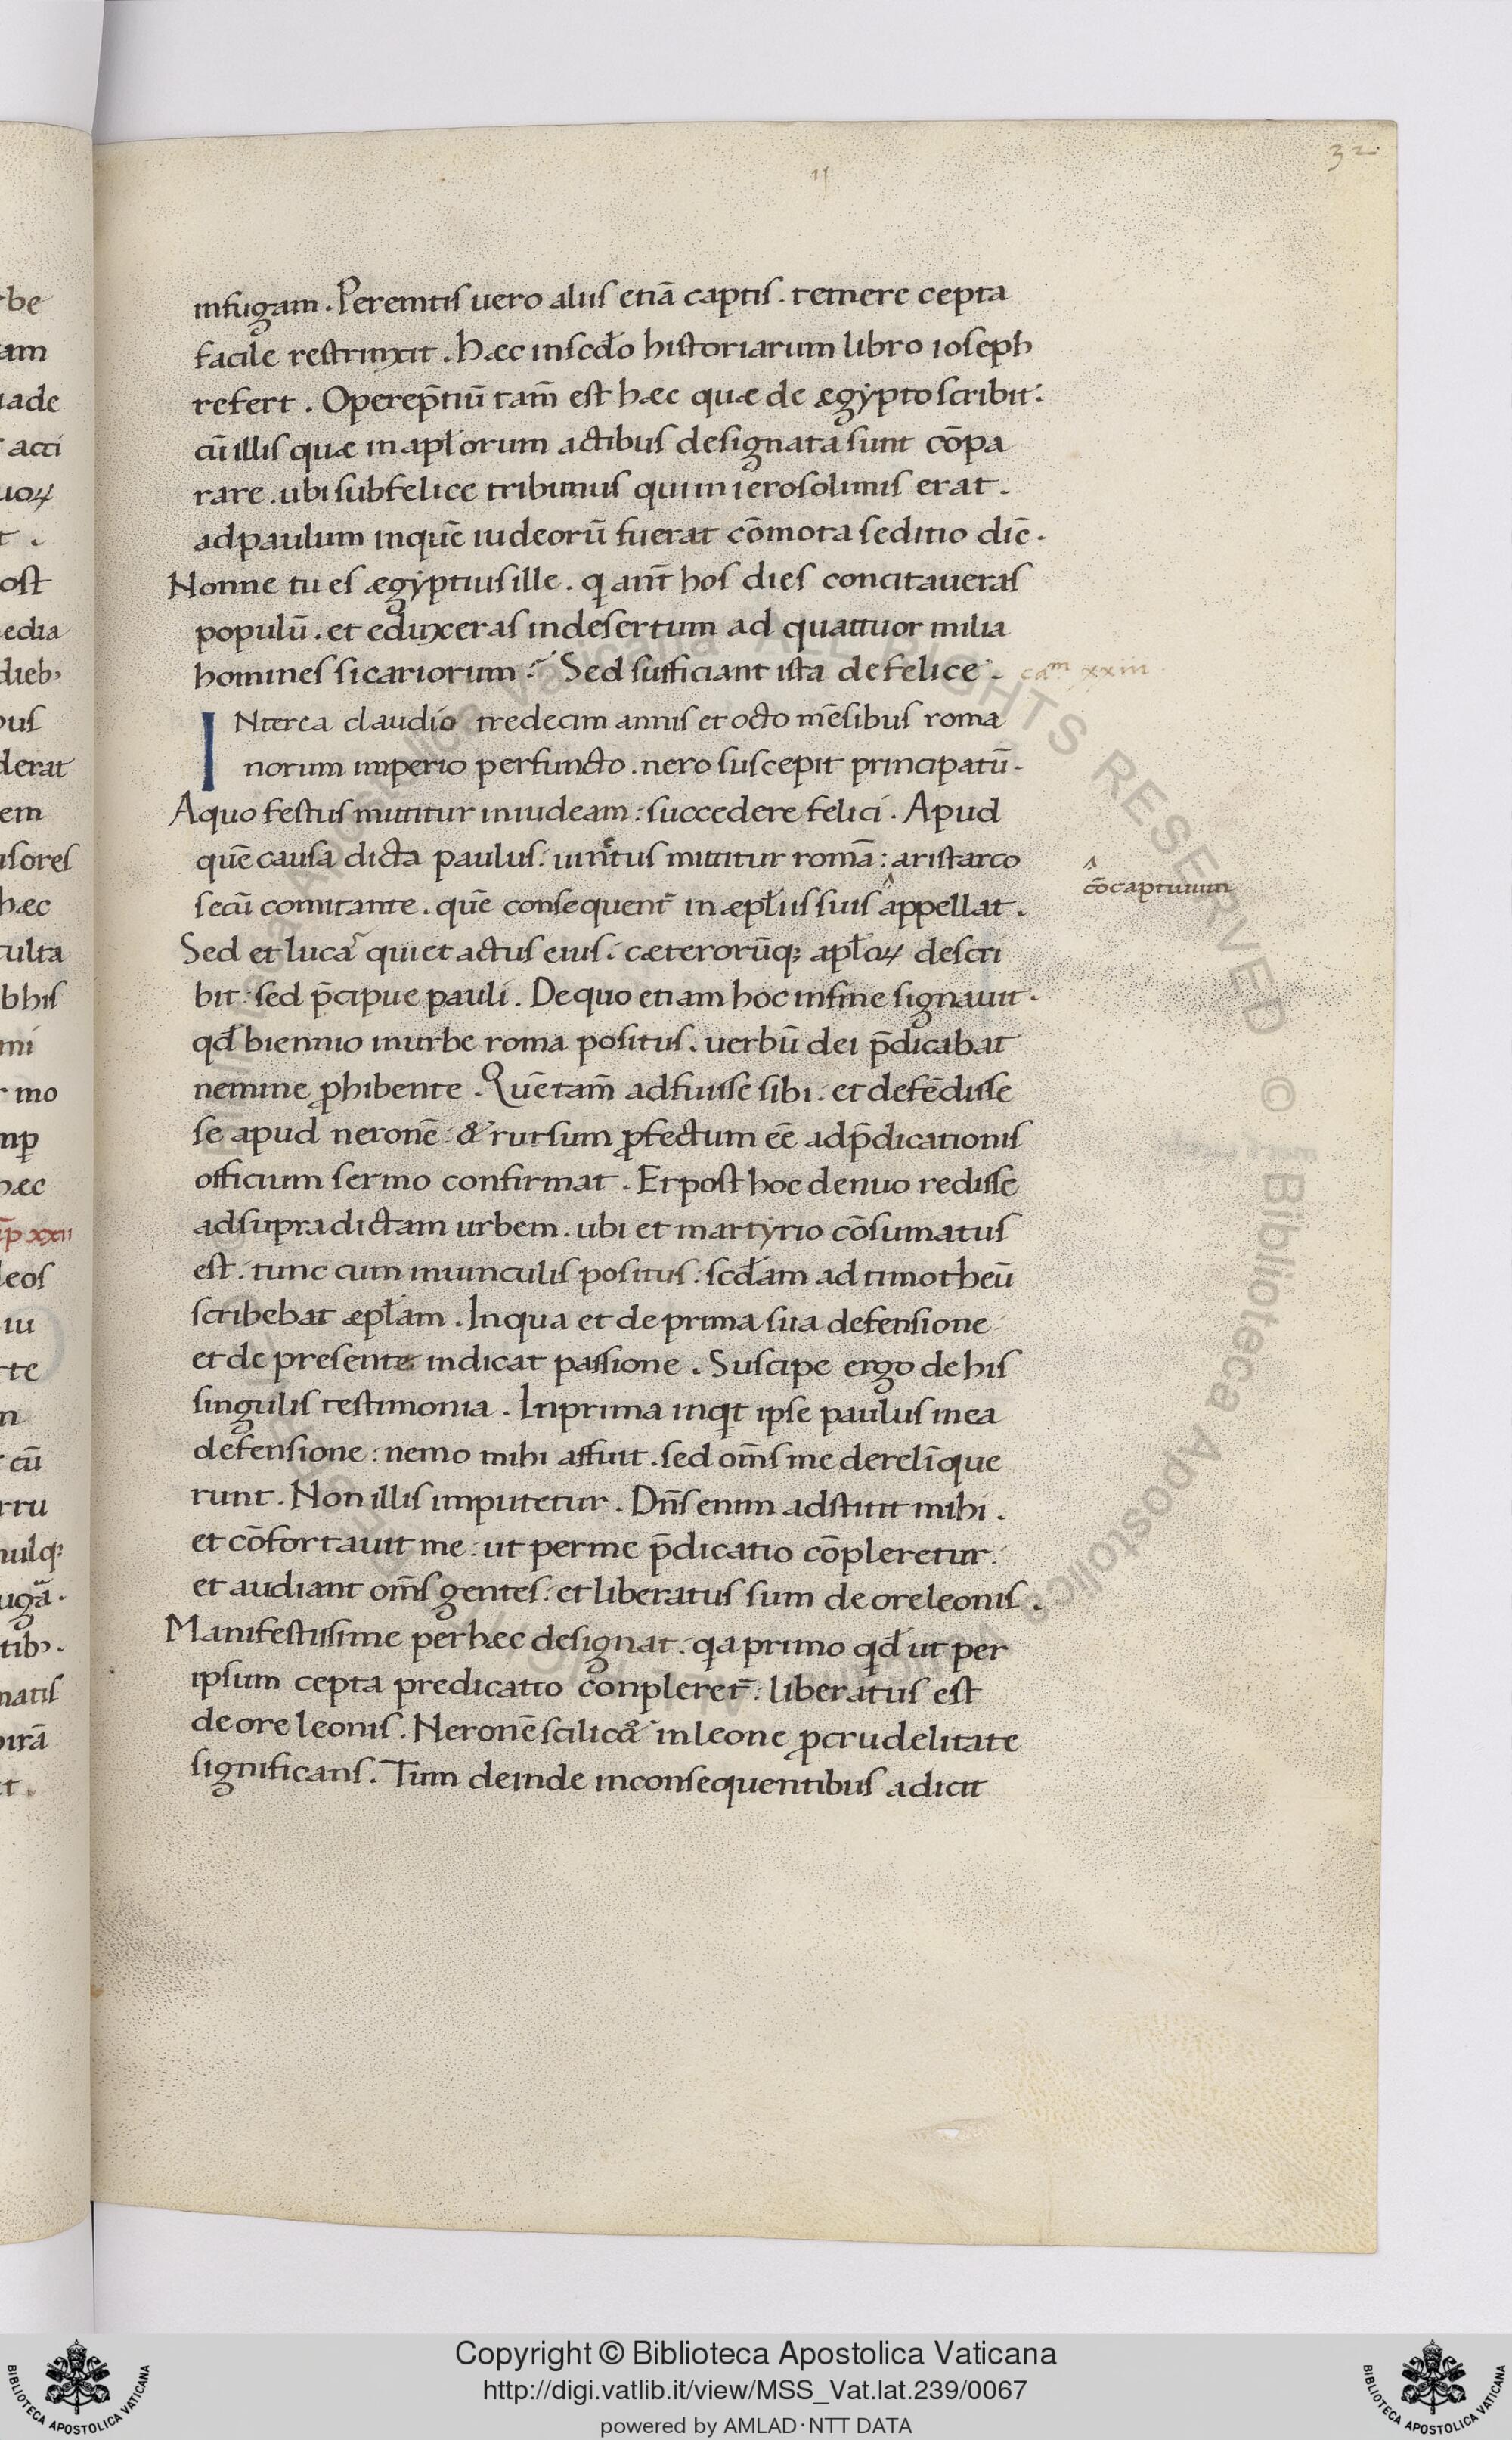 32
infugam. Peremtis uero aliis etiā captis. temere cepta
facile restrinxit. hæc inscd̄o historiarum libro ioseph
refert. Operep̄tiū tam̄ est hæc quæ de ægẏpto scribit.
cū illis quæ in apl̄orum actibus designata sunt cōpa
rare. ubi sub felice tribunus qui in ierosolimis erat.
adpaulum inquē iudeorū fuerat cōmota seditio dic̄.
Nonne tu es ægẏptius ille. q ant̄ hos dies concitaueras
populū. et eduxceras indesertum ad quattuor milia
homines sicariorum? Sed sufficiant ista de felice.
ca᷒m xxiii
INterea claudio tredecim annis et octo mēsibus roma
norum imperio perfuncto. nero suscepit principatū.
Aquo festus mittitur iniudeam: succedere felici. Apud
quē causa dicta paulus: uinctus mittitur romā: aristarco
secū comitante. quē consequent̄ in æpl̄iis suis appellat.
cōcaptiuum
Sed et lucas qui et actus eius: cæterorūq; apl̄oꝝ descri
bit: sed p̄cipue pauli. De quo etiam hoc infine signauit.
qd̄ biennio inurbe roma positus. uerbū dei p̄dicabat
nemine ꝓhibente. Quē tam̄ adfuisse sibi: et defēdisse
se apud neronē: & rursum ꝓfectum eē adp̄dicationis
officium sermo confirmat. Et post hoc denuo redisse
adsupradictam urbem. ubi et martẏrio cōsumatus
est. tunc cum inuinculis positus: scd̄am ad timotheū
scribebat æpl̄am. Inqua et de prima sua defensione
et de presente indicat passione. Suscipe ergo de his
singulis testimonia. Inprima inqt ipse paulus mea
defensione: nemo mihi affuit. sed om̄s me derelīque
runt. Non illis imputetur. Dn̄s enim adstitit mihi.
et cōfortauit me: ut perme p̄dicatio cōpleretur.
et audiant om̄s gentes: et liberatus sum de ore leonis.
Manifestissime per hæc designat: qa primo qd̄ ut per
ipsum cepta predicatio conpleret̄: liberatus est
de ore leonis. Neronē scilic& inleone ꝓcrudelitate
significans. Tum deinde inconsequentibus adicit
Copyright © Biblioteca Apostolica Vaticana
http://digi.vatlib.it/view/MSS_Vat.lat.239/0067
powered by AMLAD·NTT DATA